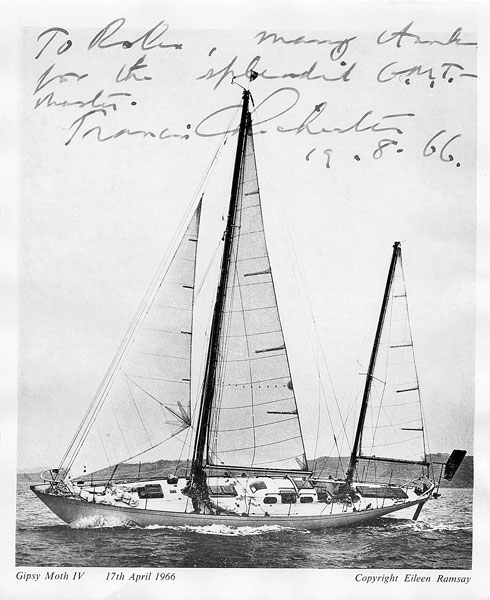 To Rolex, many thanks
for the splendid G.M.T.-
Master.
Francis Chichester
19.8.66.
Gipsy Moth IV 17th April 1966
Copyright Eileen Ramsay